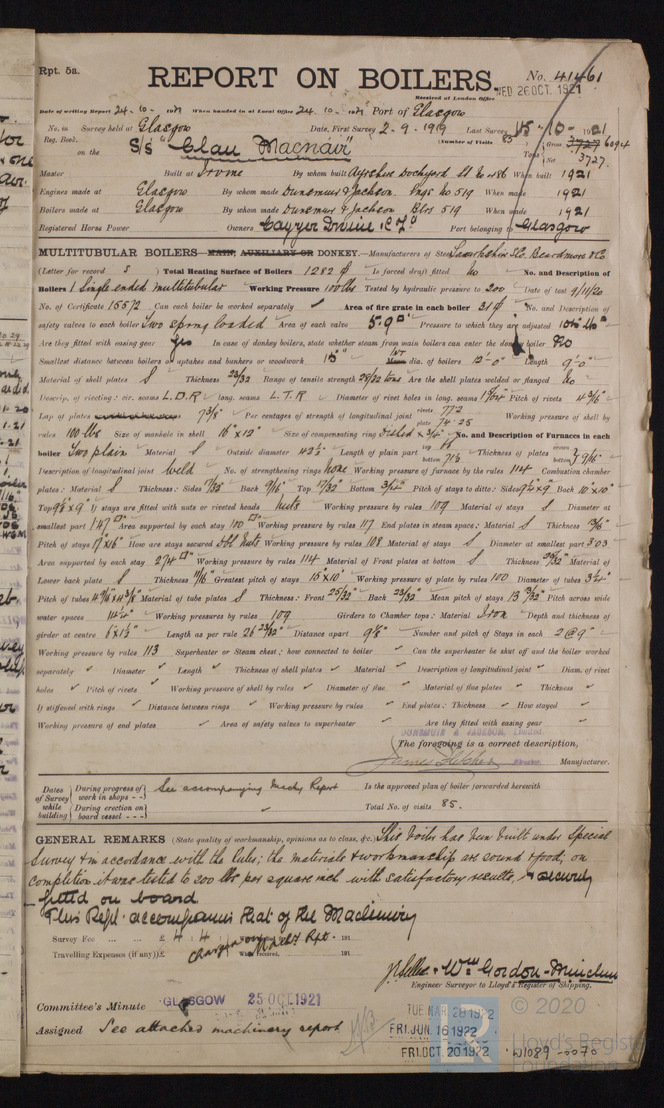 Rpt. 5a.
REPORT ON BOILERS.
No. 41461
Received at London Office WED 26 OCT. 1921
Date of writing Report 24.10.1921 When handed in at Local Office 24.10.1921 Port of Glasgow
No. in Reg. Book. Survey held at Glasgow Date, First Survey 2-9-1919 Last Survey 15-10-1921
on the S/S "Clan Macnair" (Number of Visits 85) Tons Gross 6094 Net 3727.
Master Built at Irvine By whom built Ayrshire Dockyard Ld No 486 When built 1921
Engines made at Glasgow By whom made Dunsmuir & Jackson. Engs No 519 When made 1921
Boilers made at Glasgow By whom made Dunsmuir & Jackson Blrs 519 When made 1921
Registered Horse Power Owners Cayzer Irvine & Co Port belonging to Glasgow
MULTITUBULAR BOILERS MAIN, AUXILIARY OR DONKEY.—Manufacturers of Steel Lanarkshire S Co. Beardmore & Co
(Letter for record S) Total Heating Surface of Boilers 1282 Is forced draft fitted No No. and Description of
Boilers 1 Single ended multitubular Working Pressure 100 lbs Tested by hydraulic pressure to 200 Date of test 9/11/20
No. of Certificate 15572 Can each boiler be worked separately ✓ Area of fire grate in each boiler 31 No. and Description of
safety valves to each boiler Two spring loaded Area of each valve 5.9 Pressure to which they are adjusted
Are they fitted with easing gear Yes In case of donkey boilers, state whether steam from main boilers can enter the donkey boiler No
Smallest distance between boilers or uptakes and bunkers or woodwork 15" dia. of boilers 12'-0" Length 9'-0"
Material of shell plates S Thickness 23/32 Range of tensile strength 28/32 tons Are the shell plates welded or flanged No
Descrip. of riveting: cir. seams L.D.R long. seams L.T.R Diameter of rivet holes in long. seams Pitch of rivets 4 3/8"
Lap of plates 7 3/8" Per centages of strength of longitudinal joint rivets 77.2 plate 74.25 Working pressure of shell by
rules 100 lbs Size of manhole in shell 16" x 12" Size of compensating ring Dished No. and Description of Furnaces in each
boiler Two plain Material S Outside diameter 42 1/2" Length of plain part top bottom Thickness of plates crown bottom 9/16"
Description of longitudinal joint weld No. of strengthening rings None Working pressure of furnace by the rules 114 Combustion chamber
plates: Material S Thickness: Sides 17/32 Back 9/16 Top 17/32 Bottom Pitch of stays to ditto: Sides 9 1/2 x 9 Back 10" x 10"
Top If stays are fitted with nuts or riveted heads Nuts Working pressure by rules 109 Material of stays S Diameter at
smallest part 1.47 Area supported by each stay 100 Working pressure by rules 117 End plates in steam space: Material S Thickness
Pitch of stays 17" x 16" How are stays secured Dbl Nuts Working pressure by rules 108 Material of stays S Diameter at smallest part 3.03
Area supported by each stay 274 Working pressure by rules 114 Material of Front plates at bottom S Thickness 25/32 Material of
Lower back plate S Thickness Greatest pitch of stays 15" x 10 Working pressure of plate by rules 100 Diameter of tubes 3 1/4"
Pitch of tubes Material of tube plates S Thickness: Front 25/32 Back 23/32 Mean pitch of stays Pitch across wide
water spaces 14 1/4" Working pressures by rules 109 Girders to Chamber tops: Material Iron Depth and thickness of
girder at centre 6 x 1 1/2" Length as per rule 26 23/32 Distance apart Number and pitch of Stays in each 2 @ 9"
Working pressure by rules 113 Superheater or Steam chest; how connected to boiler Can the superheater be shut off and the boiler worked
separately Diameter Length Thickness of shell plates Material Description of longitudinal joint Diam. of rivet
holes Pitch of rivets Working pressure of shell by rules Diameter of flue Material of flue plates Thickness
If stiffened with rings Distance between rings Working pressure by rules End plates: Thickness How stayed
Working pressure of end plates Area of safety valves to superheater Are they fitted with easing gear
DUNSMUIR & JACKSON, Limited.
The foregoing is a correct description,
James Fletcher Manufacturer.
Dates of Survey while building During progress of work in shops - - See accompanying Machy Report Is the approved plan of boiler forwarded herewith
During erection on board vessel - - - Total No. of visits 85.
GENERAL REMARKS (State quality of workmanship, opinions as to class, &c.) This boiler has been built under Special
Survey & in accordance with the Rules; the materials & workmanship are sound & good; on
completion it was tested to 200 lbs per square inch with satisfactory results, & securely
fitted on board
This Rept. accompanies that of the Machinery
Survey Fee ... ... £ 4 : 4 : Charged on Machy Rpt. 191
Travelling Expenses (if any) £ When received, 191
Wm Gordon-
Engineer Surveyor to Lloyd's Register of Shipping.
Committee's Minute GLASGOW 25 OCT 1921
Assigned See attached machinery report
TUE. MAR. 28 1922
FRI. JUN. 16 1922
FRI. OCT. 20 1922
W1089-0070
© 2020
Lloyd's Register
Foundation